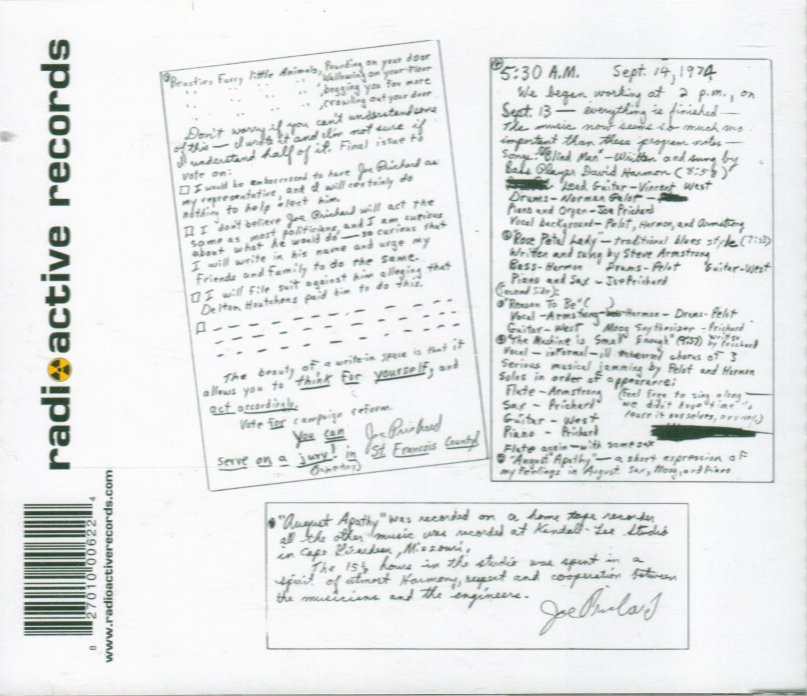 radioactive records
8 27010 00622 4
www.radioactiverecords.com
Beasties Furry little Animals, Pounding on your door
" " " " , Wallowing on your floor
" " " " , begging you for more
" " " " , crawling out your door
Don't worry if you can't understand some
of this — I wrote it and I'm not sure if
I understand half of it. Final issue to
vote on:
□ I would be embarrassed to have Joe Prichard as
my representative, and I will certainly do
nothing to help elect him.
□ I don't believe Joe Prichard will act the
same as most politicians, and I am curious
about what he would do — so curious that
I will write in his name and urge my
friends and family to do the same.
□ I will file suit against him alleging that
Delton Houtchens paid him to do this.
□
The beauty of a write-in space is that it
allows you to think for yourself, and
act accordingly.
Vote for campaign reform.
You can
serve on a jury! in
Joe Prichard
St Francois County
5:30 A.M. Sept. 14, 1974
We began working at 2 p.m., on
Sept. 13 — everything is finished —
The music now seems so much mo
important than these program notes —
Song: "Blind Man" — Written and sung by
Bass Player David Harmon
Lead Guitar — Vincent West
Drums — Norman Pelot —
Piano and Organ — Joe Prichard
Vocal background — Pelot, Harmon, and Armstrong
"Rose Petal Lady" — traditional blues style
Written and sung by Steve Armstrong
Bass — Harmon Drums — Pelot Guitar — West
Piano and Sax — Joe Prichard
(Second Side):
"Reason To Be" ( )
Vocal — Armstrong Harmon — Drums — Pelot
Guitar — West Moog Snythesizer — Prichard
"The Machine is Small Enough" (9:37) written by Prichard
Vocal — informal — ill rehearsed chorus of 3
Serious musical jamming by Pelot and Harmon
Solos in order of appearance:
Flute — Armstrong (feel free to sing along
Sax — Prichard we didn't have time to
Guitar — West
Piano — Prichard
Flute again — with some sax
"August Apathy" — a short expression of
my feelings in August. Sax, Moog, and Piano
"August Apathy" was recorded on a home tape recorder
all the other music was recorded at Kendall-Lee Studio
in Cape Girardeau, Missouri.
The 15½ hours in the studio was spent in a
spirit of utmost harmony, respect and cooperation between
the musicians and the engineers.
Joe Prichard